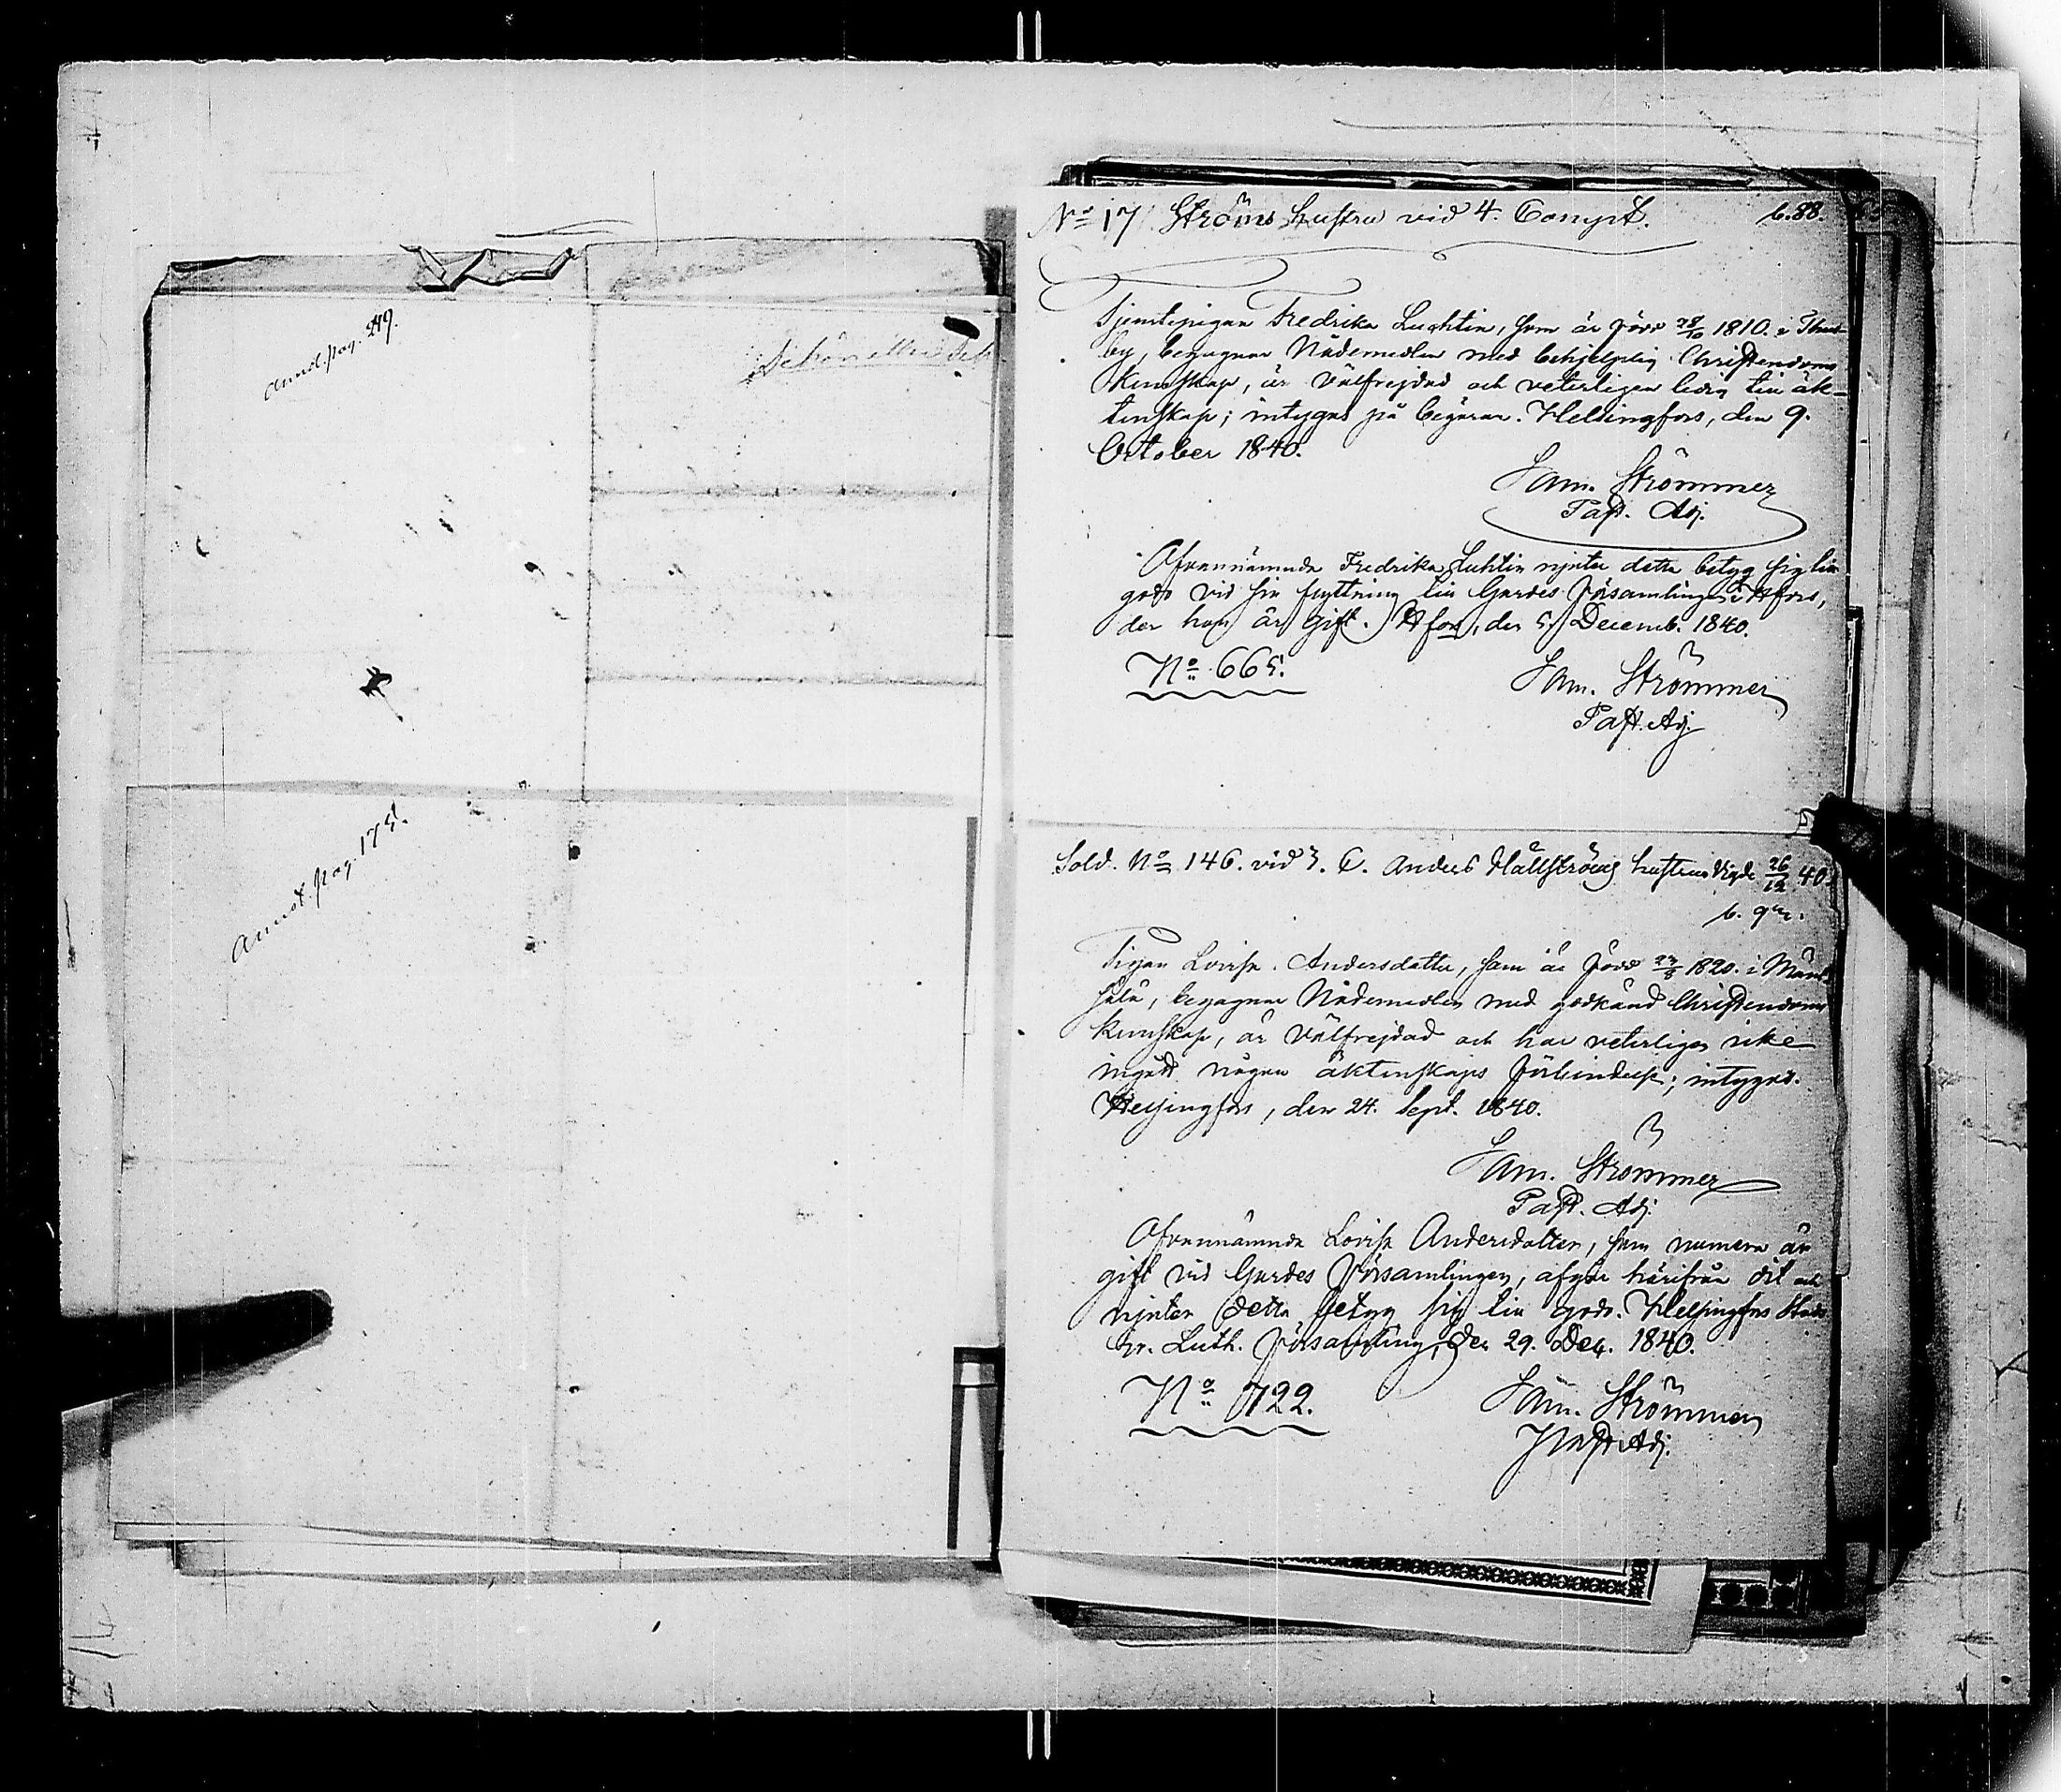 Annot. pag. 219.
Annot. pag. 175.
No 17 Ströms hustru vid 4. Compt. b. 88.
Tjenstepigan Fredrika Luchtin, som är född 28/10 1810. i Thus-
by, begagnar Nådemedlen med behjelplig Christendoms
kunskap, är välfrejdad och veterligen ledig till äk-
tenskap; intygas på begäran. Helsingfors, den 9.
October 1840.
Sam. Strömmer
Past. Adj.
Ofvannämnda Fredrika Luhtin njuter detta betyg sig till
godo vid sin flyttning till Gardes Församlingen i Hfors,
der hon är gift. Hfors, den 5. Decemb. 1840.
No 665.
Sam. Strömmer
Past. Adj.
Sold. No 146. vid 3. C. Anders Hällströms hustru vigde 26/12 40
Pigan Lovisa Andersdotter, som är född 27/8 1820. i Mänt-
sälä, begagnar Nådemedlen med godkänd Christendoms
kunskap, är välfrejdad och har veterligen icke
ingått någon äktenskaps förbindelse; intygas.
Helsingfors, den 24. Sept. 1840.
Sam. Strömmer
Past. Adj.
Ofvannämnda Lovisa Andersdotter, som numera är
gift vid Gardes Församlingen, afgår härifrån dit och
njuter detta betyg sig till godo. Helsingfors Stads
Ev. Luth. Församling, den 29. Dec. 1840.
No 722.
Sam. Strömmer
Past. Adj.